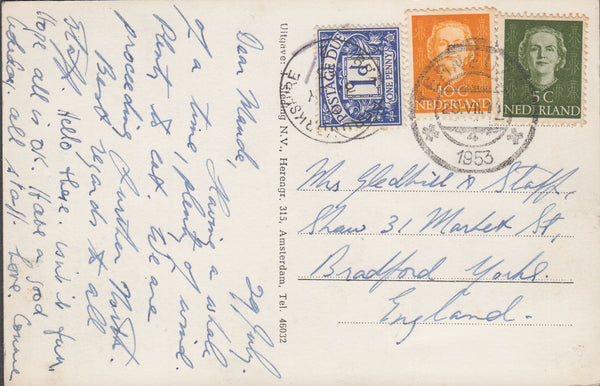 29 July.
Dear Maude,
Having a whale
of a time, plenty of wind.
Plenty to eat. We are
proceeding further North.
Best regards to all
Staff. Hello there. isn't it fun.
Hope all is OK. Have a good
holiday. all staff love. Connie
Uitgave: N.V., Herengr. 315, Amsterdam, Tel. 46032
POSTAGE DUE
1D
ONE PENNY
YORKSHIRE
10 C
NEDERLAND
5 C
NEDERLAND
1953
Mrs Gledhill & Staff,
Shaw 31 Market St,
Bradford Yorks.
England.